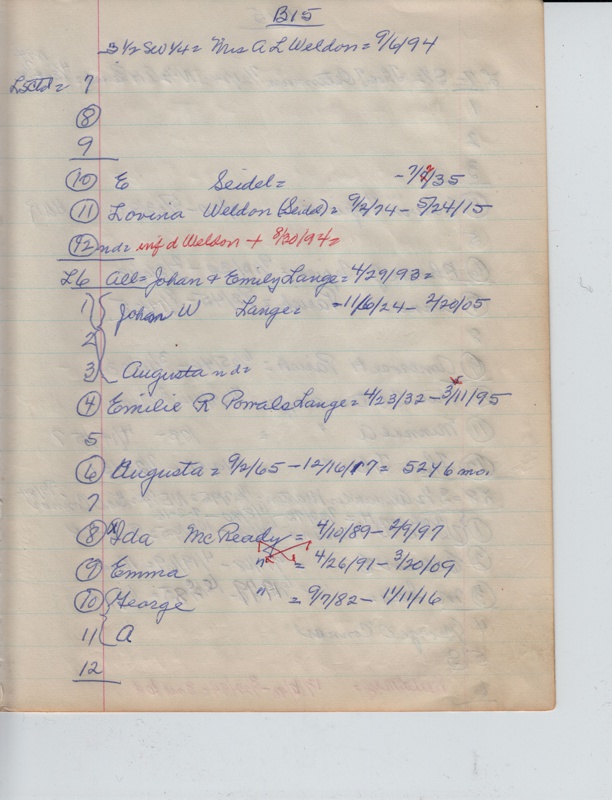 B15
S 1/2 SW 1/4 = Mrs A L Weldon = 9/6/94
7
8
9
10 E Seidel = - 7/7/35
11 Lovina Weldon (Seidel) = 9/2/74 - 5/24/15
12 nd = inf d Weldon + 8/30/94 =
L6 All = Johan & Emily Lange = 4/29/93 =
1 Johan W Lange = - 11/6/24 - 2/20/05
2
3 Augusta nd =
4 Emilie R Lange = 4/23/32 - 3/11/95
5
6 Augusta = 9/2/65 - 12/16/17 = 52 y 6 mo.
7
8 Ida McReady = 4/10/89 - 2/9/97
9 Emma " = 4/26/91 - 3/20/09
10 George " = 9/7/82 - 11/11/16
11 A
12